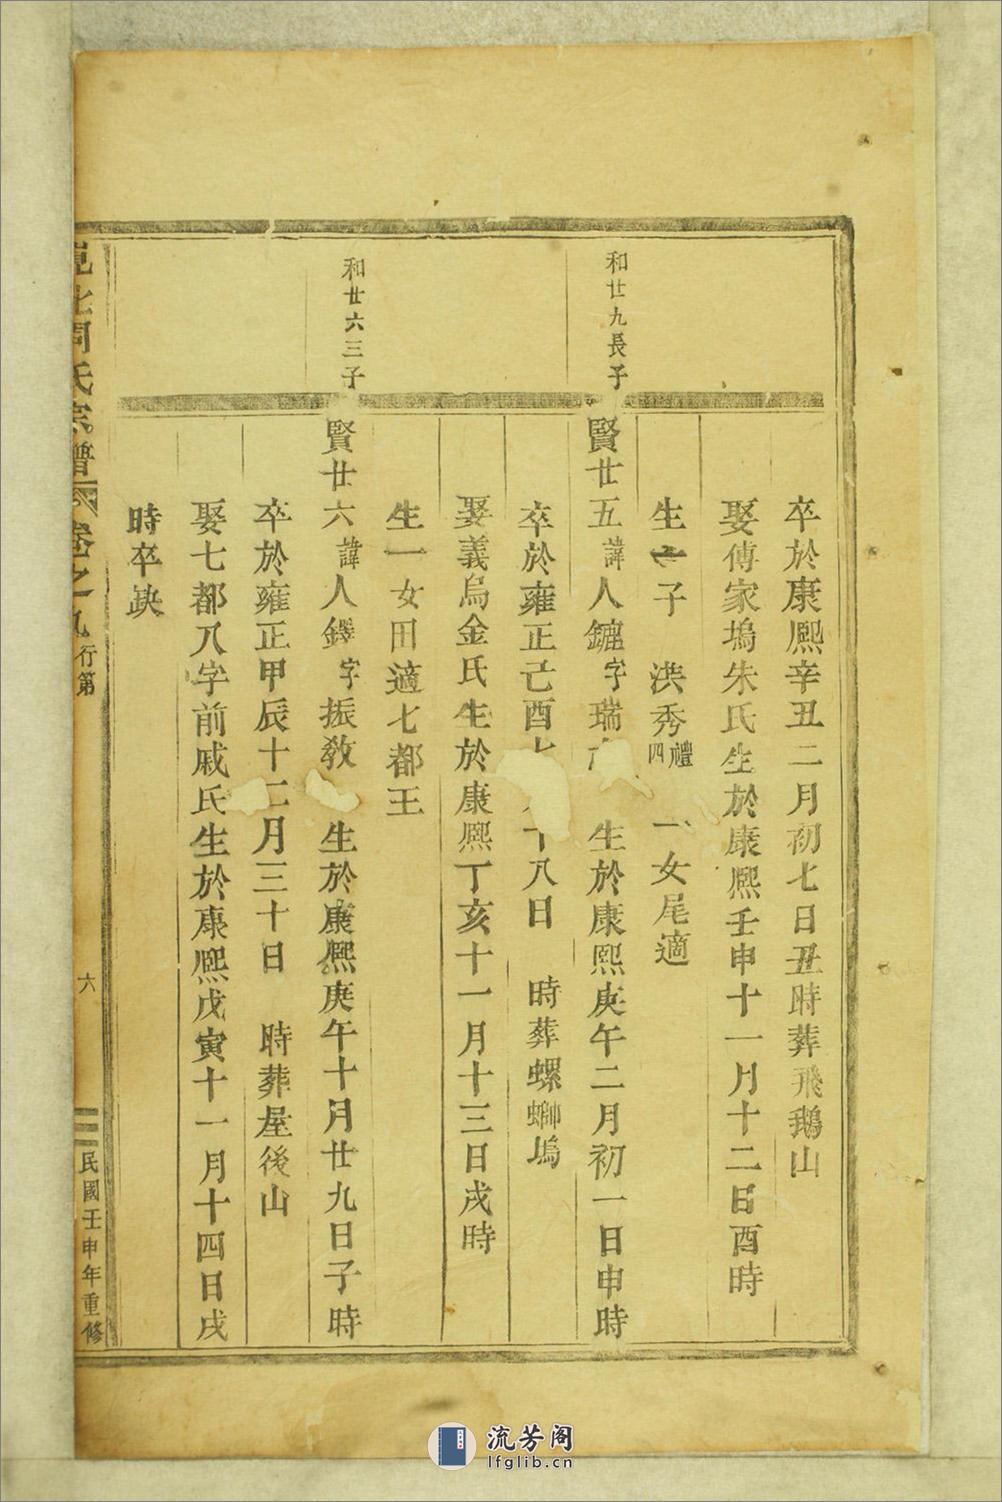 卒於康熙辛丑二月初七日丑時葬飛鵝山
娶傅家塢朱氏生於康熙壬申十一月十二日酉時
生一子 洪秀禮四 一女尾適
和廿九長子
賢廿五諱人鏓字瑞 生於康熙庚午二月初一日申時
卒於雍正己酉七 十八日 時葬螺螄塢
娶義烏金氏生於康熙丁亥十一月十三日戌時
生一女田適七都王
和廿六三子
賢廿六諱人鐸字振教 生於康熙庚午十月廿九日子時
卒於雍正甲辰十二月三十日 時葬屋後山
娶七都八字前戚氏生於康熙戊寅十一月十四日戌
時卒缺
北周氏宗譜 卷之九 行第 六 民國壬申年重修
流芳阁
lfglib.cn